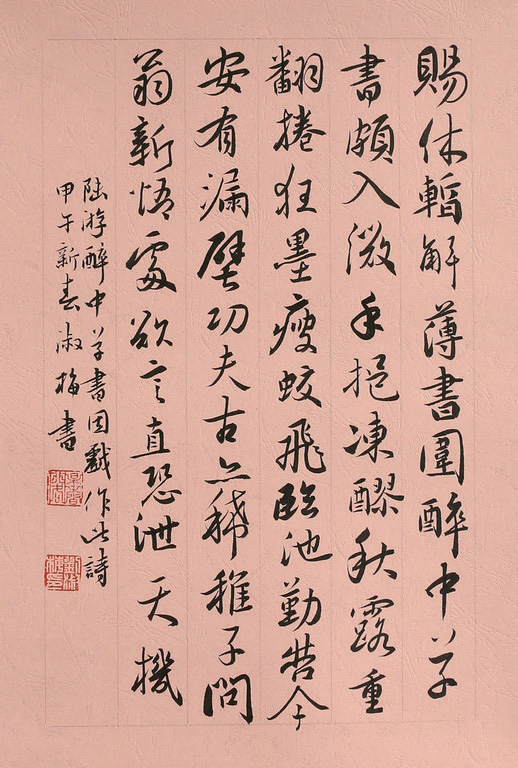 賜休暫解薄書圍醉中草
書頗入微手挹凍醪秋露重
翻捲狂墨瘦蛟飛臨池勤苦今
安有漏壁功夫古亦稀稚子問
翁新悟處欲言直恐泄天機
陆游醉中草書因戲作此詩
甲午新春淑梅書
劉淑梅印